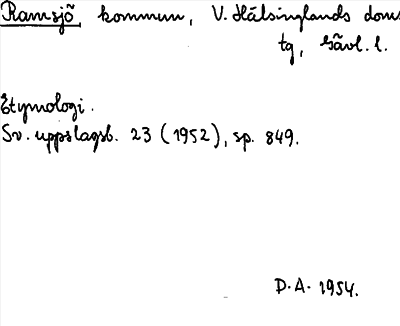 Ramsjö, kommun, V. Hälsinglands doms
tg, Gävl. l.
Etymologi.
Sv. uppslagsb. 23 (1952), sp. 849.
D.A. 1954.